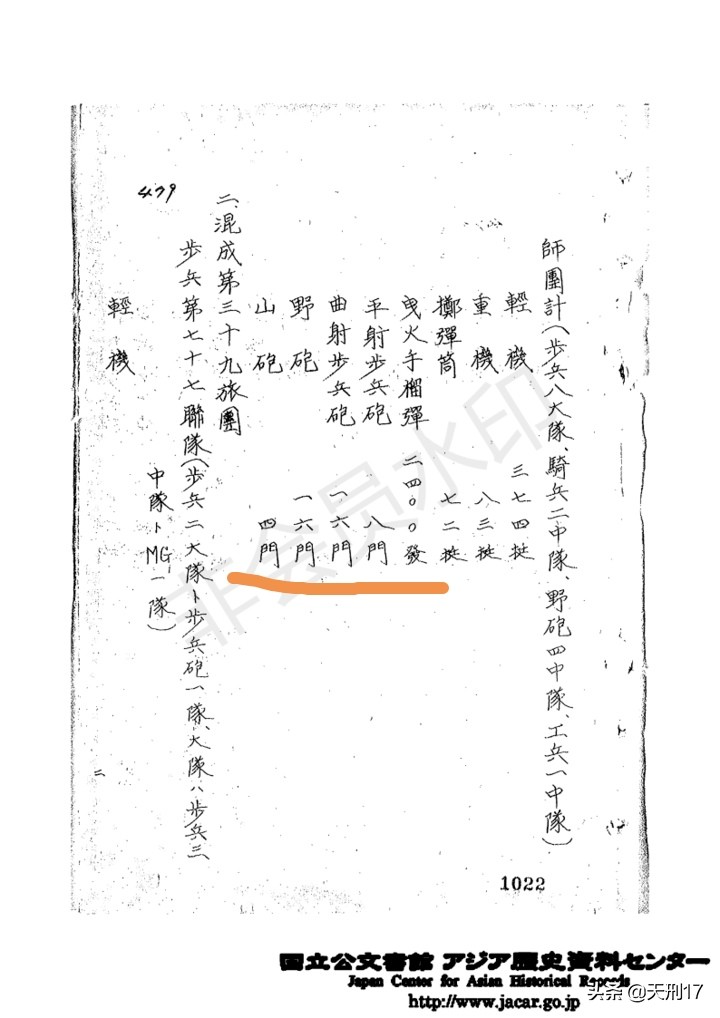 師團計(歩兵八大隊、騎兵二中隊、野砲四中隊、工兵一中隊)
輕機 三七四挺
重機 八三挺
擲彈筒 七二挺
曳火手榴彈 二四〇〇發
平射歩兵砲 八門
曲射歩兵砲 一六門
野砲 一六門
山砲 四門
二、混成第三十九旅團
歩兵第七十七聯隊(歩兵二大隊ト歩兵砲一隊、大隊ハ歩兵三
中隊ト MG 一隊)
輕機
479
二
1022
非会员水印
国立公文書館 アジア歴史資料センター
Japan Center for Asian Historical Records
http://www.jacar.go.jp
头条 @天刑17